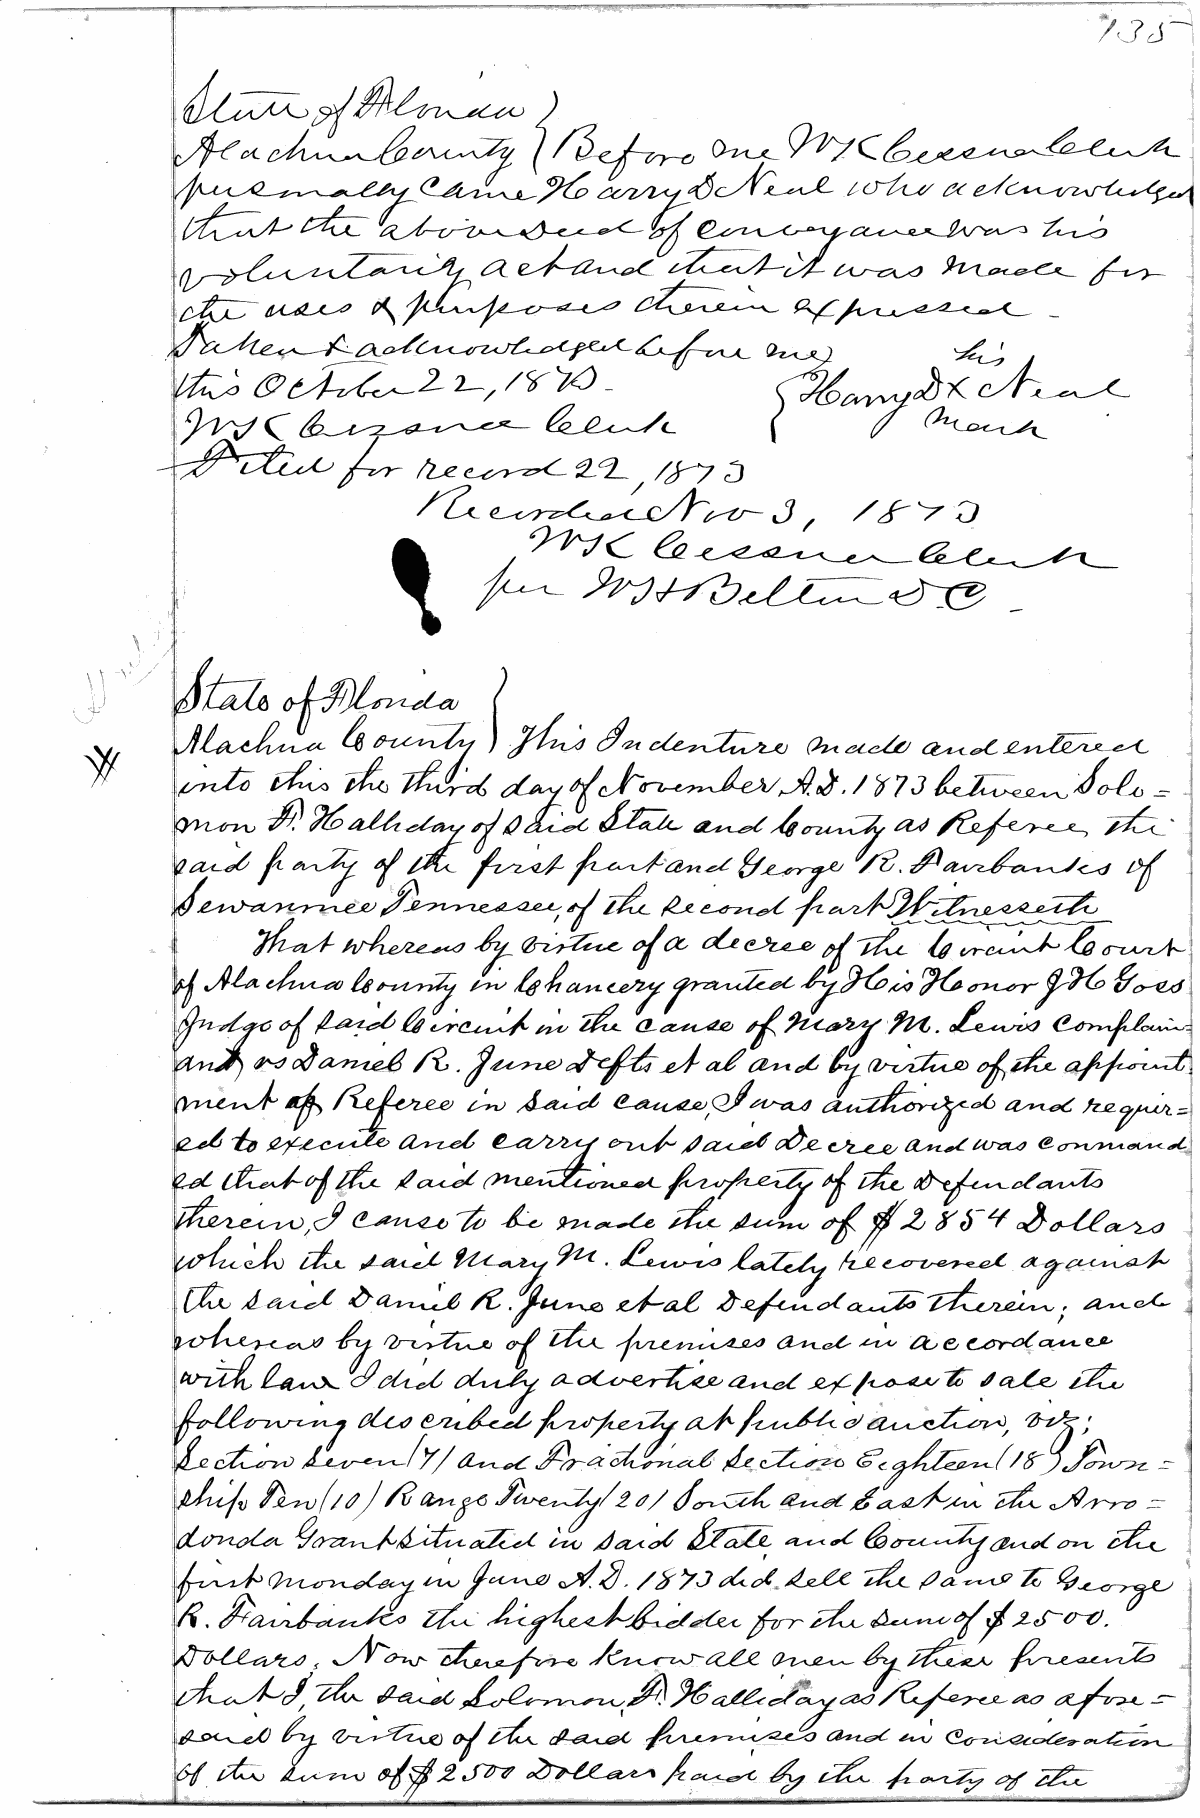 135
State of Florida
Alachua County } Before me W K Cessna Clerk
personally came Harry D Neal who acknowledged
that the above deed of conveyance was his
voluntarily act and that it was made for
the uses & purposes therein expressed
Taken & acknowledged before me
this October 22, 1873.
his
Harry D X Neal
mark
W K Cessna Clerk
Filed for record 22, 1873
Recorded Nov 3, 1873
W K Cessna Clerk
per W H Belton D C
State of Florida
Alachua County } This Indenture made and entered
into this the third day of November A.D. 1873 between Solo=
mon F. Halliday of said State and County as Referee, the
said party of the first part and George R. Fairbanks of
Sewannee Tennessee, of the second part Witnesseth
That whereas by virtue of a decree of the Circuit Court
of Alachua County in Chancery granted by His Honor J H Goss
Judge of said Circuit in the cause of Mary M. Lewis Complain=
ant vs Daniel R. June Defts et al and by virtue of the appoint
ment as Referee in said cause, I was authorized and requir=
ed to execute and carry out said Decree and was command
ed that of the said mentioned property of the Defendants
therein, I cause to be made the sum of $ 2854 Dollars
which the said Mary M. Lewis lately recovered against
the said Daniel R. June et al Defendants therein; and
whereas by virtue of the premises and in accordance
with law I did duly advertise and expose to sale the
following described property at public auction, viz;
Section Seven (7) and Fractional Section Eighteen (18) Town=
ship Ten (10) Range Twenty (20) South and East in the Arro=
donda Grant situated in said State and County and on the
first Monday in June A.D. 1873 did sell the same to George
R. Fairbanks the highest bidder for the sum of $ 2500.
Dollars. Now therefore know all men by these presents
that I, the said Solomon F. Halliday as Referee as afore=
said by virtue of the said premises and in consideration
of the sum of $ 2500 Dollars paid by the party of the